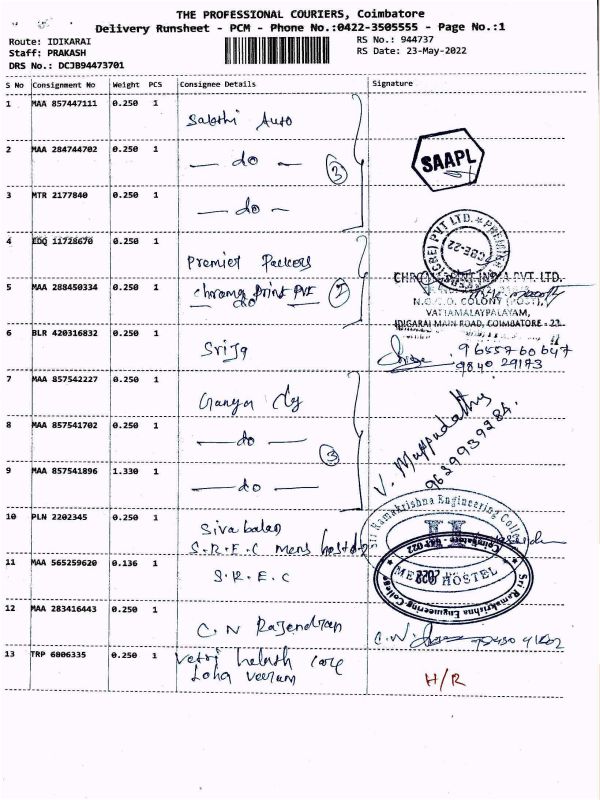 THE PROFESSIONAL COURIERS, Coimbatore
Delivery Runsheet - PCM - Phone No.:0422-3505555 - Page No.:1
Route: IDIKARAI
Staff: PRAKASH
DRS No.: DCJB94473701
RS No.: 944737
RS Date: 23-May-2022
S No Consignment No Weight PCS Consignee Details Signature
1 MAA 857447111 0.250 1 Sakthi Auto
2 MAA 284744702 0.250 1 — do — 3 SAAPL
3 MTR 2177840 0.250 1 — do —
4 EDQ 11728670 0.250 1 Premier Packers
PVT LTD. * PREMIER
5 MAA 288450334 0.250 1 Chroma Print PVT 2
— do —
PVT. LTD.
N.G.G.O. COLONY (POST),
VATTAMALAYPALAYAM,
IDIGARAI MAIN ROAD, COIMBATORE - 23
6 BLR 420316832 0.250 1 Srija 9655760647
9840 29173
7 MAA 857542227 0.250 1 Ganga
8 MAA 857541702 0.250 1 — do — 3 V. Muppudathy
9629939284.
9 MAA 857541896 1.330 1 — do —
10 PLN 2202345 0.250 1 Sivabalan
S.R.E.C mens hostel
Sri Ramakrishna Engineering College
11 MAA 565259620 0.136 1 S.R.E.C
MENS HOSTEL
Sri Ramakrishna Engineering College
Coimbatore - 641 022
12 MAA 283416443 0.250 1 C.N Rajendran C.N.
13 TRP 6806335 0.250 1 Vetri helath care
Loha veeram
H/R